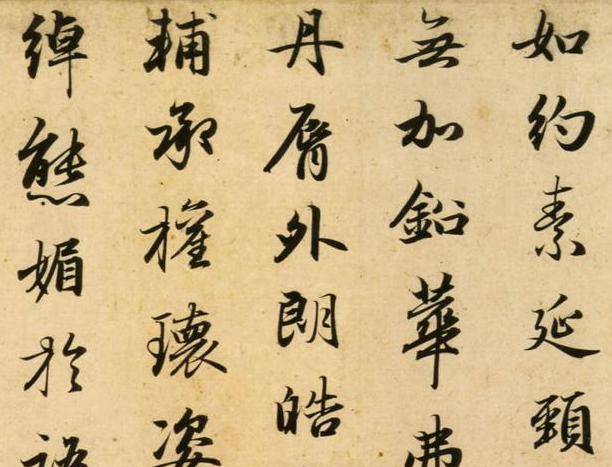 如約素延頸
無加鉛華弗
丹脣外朗皓
輔承權瓌姿
綽態媚於語